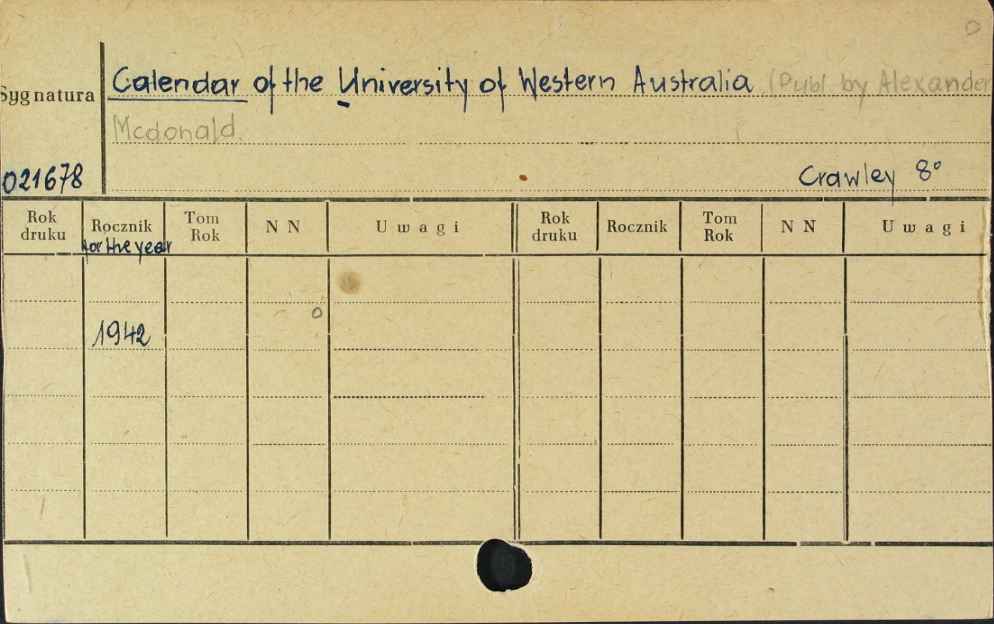 Sygnatura
Calendar of the University of Western Australia (Publ. by Alexander
Mcdonald.
021678
Crawley 8°
Rok druku Rocznik Tom Rok N N Uwagi Rok druku Rocznik Tom Rok N N Uwagi
for the year
1942